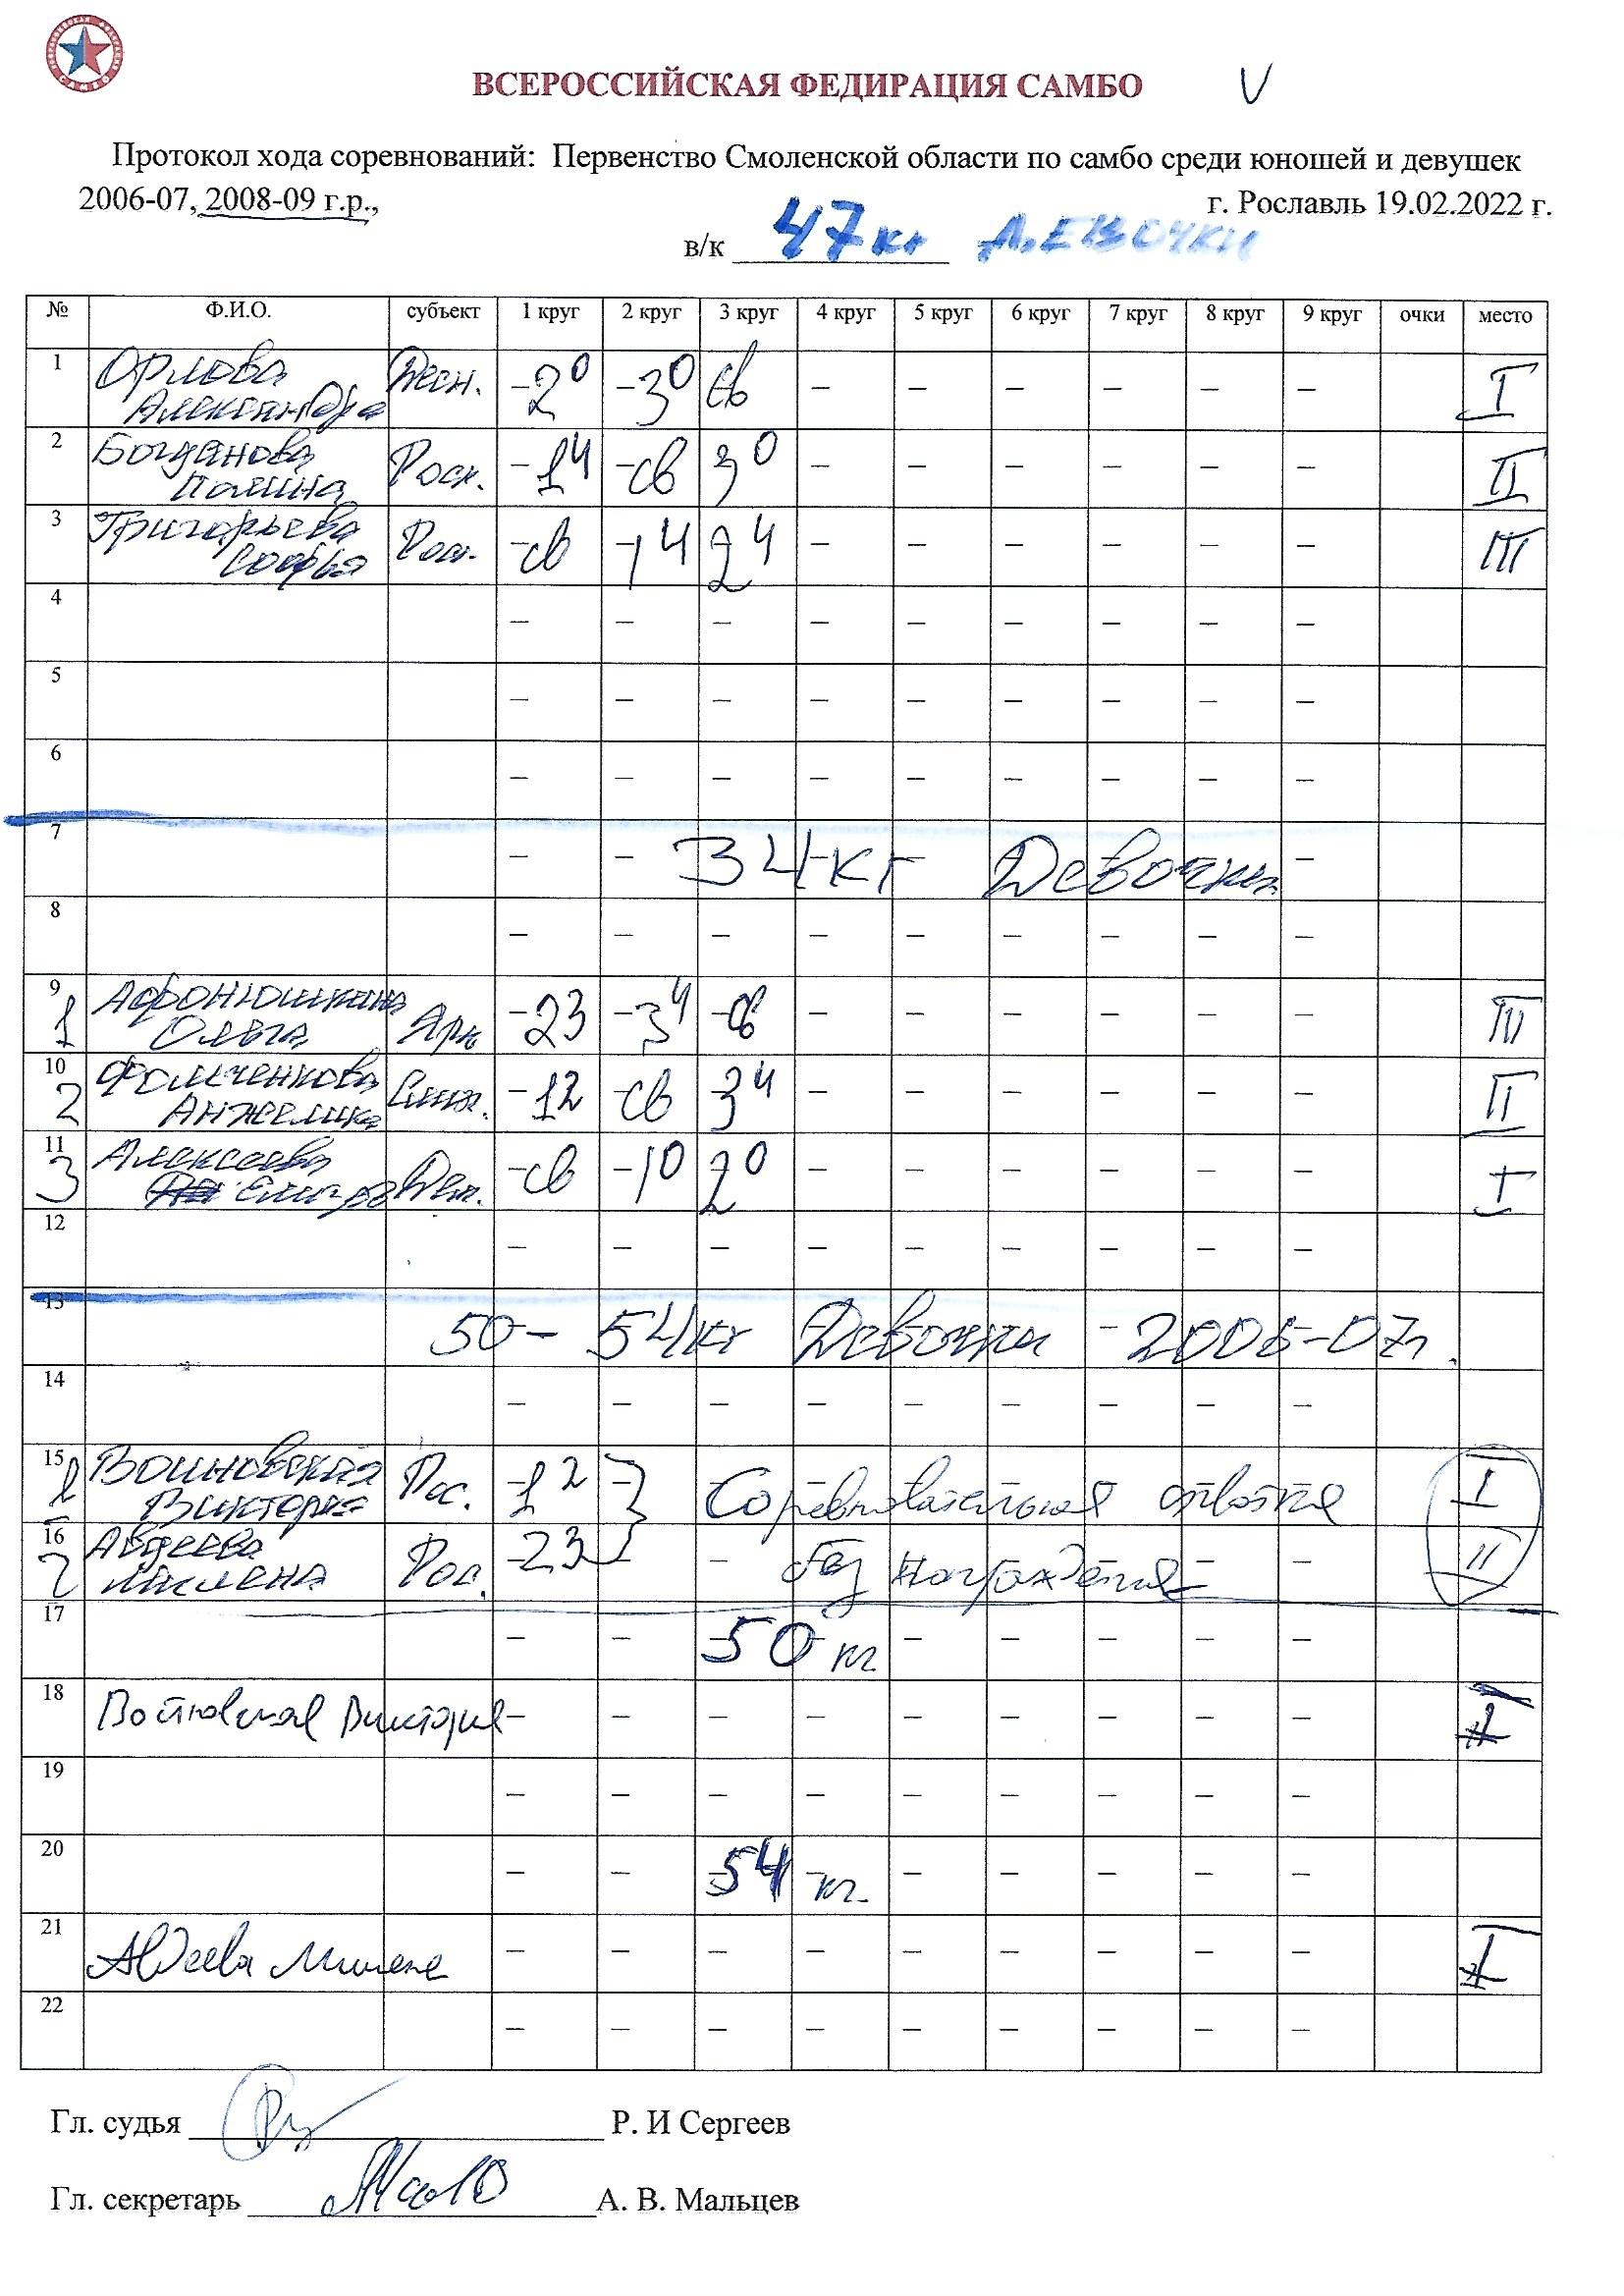 ВСЕРОССИЙСКАЯ ФЕДИРАЦИЯ САМБО V
Протокол хода соревнований: Первенство Смоленской области по самбо среди юношей и девушек
2006-07, 2008-09 г.р., г. Рославль 19.02.2022 г.
в/к 47 кг девочки
№ Ф.И.О. субъект 1 круг 2 круг 3 круг 4 круг 5 круг 6 круг 7 круг 8 круг 9 круг очки место
1 Орлова Александра Десн. –2 0 –3 0 св – – – – – – I
2 Богданова Полина Росл. –1 4 –св 3 0 – – – – – – II
3 Григорьева Софья Росл. –св –1 4 2 4 – – – – – – III
4 – – – – – – – – –
5 – – – – – – – – –
6 – – – – – – – – –
7 – – 34 кг Девочки –
8 – – – – – – – – –
9 1 Афонюшкина Ольга –2 3 –3 4 –св – – – – – – III
10 2 Фомченкова Анжелика –1 2 св 3 4 – – – – – – II
11 3 Алексеева –св –1 0 2 0 – – – – – – I
12 – – – – – – – – –
13 50 – 54 кг Девочки – 2006-07г.
14 – – – – – – – – –
15 1 Войновская Виктория Рос. –1 2 Соревновательная схватка I
16 2 Авдеева Милена Рос. –2 3 – – без награждения – – II
17 – – 50 кг – – – – –
18 Войновская Виктория – – – – – – – – – I
19 – – – – – – – – –
20 – – 54 кг. – – – – –
21 Авдеева Милена – – – – – – – – – I
22 – – – – – – – – –
Гл. судья Р. И Сергеев
Гл. секретарь А. В. Мальцев